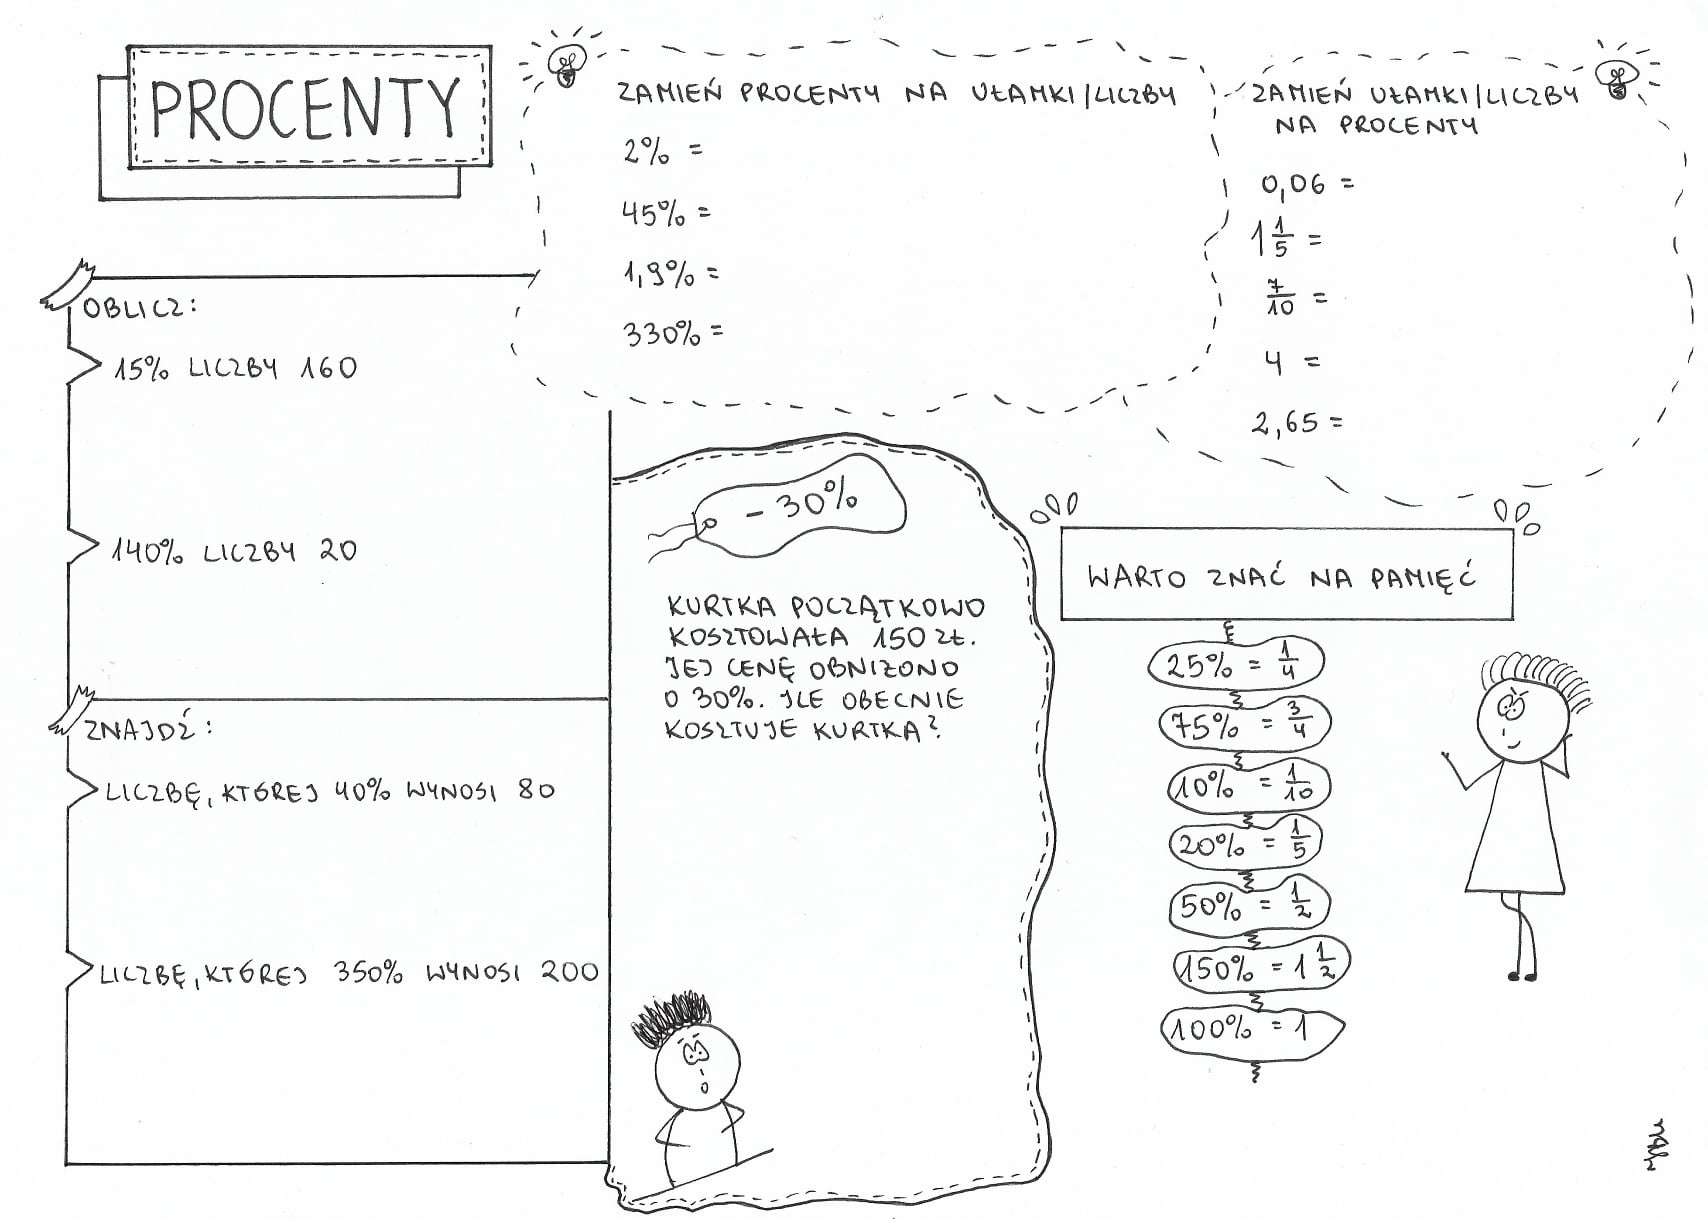 PROCENTY
ZAMIEŃ PROCENTY NA UŁAMKI/LICZBY
2% =
45% =
1,9% =
330% =
ZAMIEŃ UŁAMKI/LICZBY
NA PROCENTY
0,06 =
1 1/5 =
7/10 =
4 =
2,65 =
OBLICZ:
15% LICZBY 160
140% LICZBY 20
ZNAJDŹ:
LICZBĘ, KTÓREJ 40% WYNOSI 80
LICZBĘ, KTÓREJ 350% WYNOSI 200
- 30%
KURTKA POCZĄTKOWO
KOSZTOWAŁA 150 ZŁ.
JEJ CENĘ OBNIŻONO
O 30%. ILE OBECNIE
KOSZTUJE KURTKA?
WARTO ZNAĆ NA PAMIĘĆ
25% = 1/4
75% = 3/4
10% = 1/10
20% = 1/5
50% = 1/2
150% = 1 1/2
100% = 1